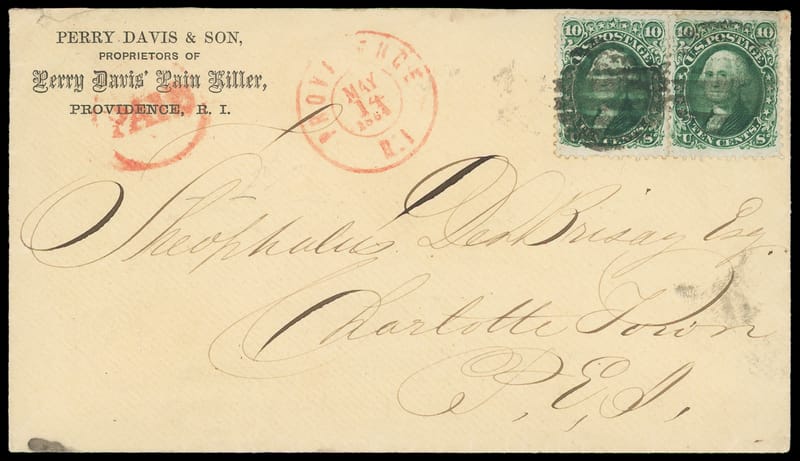 PERRY DAVIS & SON,
PROPRIETORS OF
Perry Davis' Pain Killer,
PROVIDENCE, R. I.
PAID
PROVIDENCE
MAY
14
R.I
10 10
U.S. POSTAGE
TEN CENTS
U S
10 10
U.S. POSTAGE
TEN CENTS
U S
Theophalus DesBrisay Esq
Charlotte Town
P. E, I,